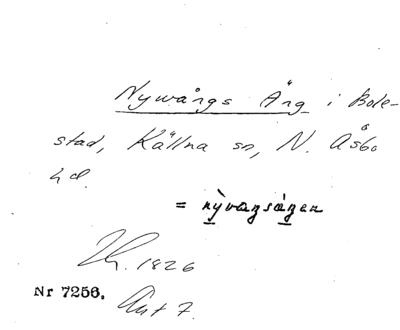 Nywångs Äng i Bole-
stad, Källna sn, N. Åsbo
hd.
= nỳvaŋsäŋen
1826
Nr 7256.
Ant 7.